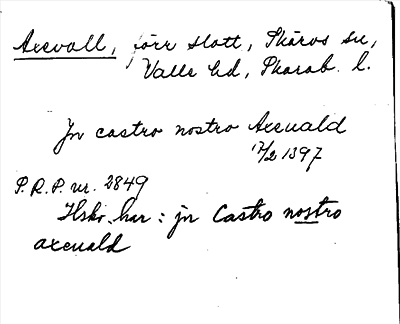 Axevall, förr slott, Skärvs sn,
Valle hd, Skarab. l.
Jn castro nostro Axeuald
17/2 1397
P.R.P. nr. 2849
Hskr. har: jn Castro nostro
axeuald